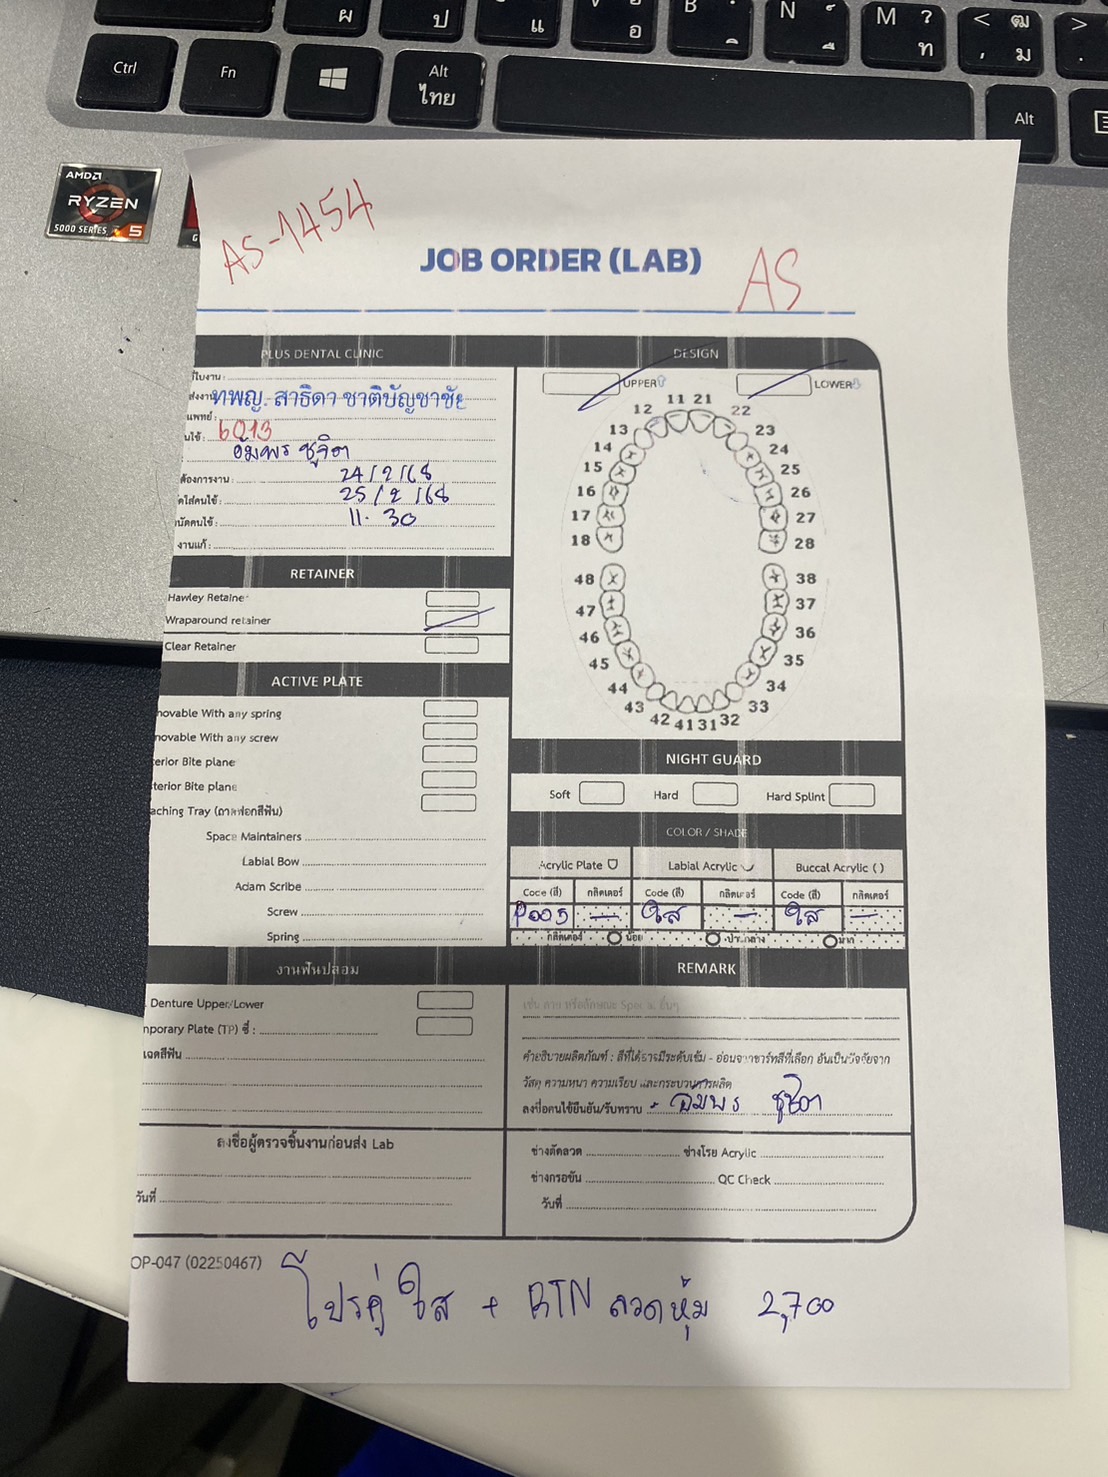 ผ ป แ อ B N M ? ท < ฒ , ม > .
Ctrl Fn Alt ไทย Alt
AMD
RYZEN
5000 SERIES 5
AS-1454
JOB ORDER (LAB)
AS
PLUS DENTAL CLINIC
ใบงาน :
ส่งงาน
ทพญ. สาธิดา ชาติบัญชาชัย
แพทย์ :
นไข้ : 6013
อัมพร ชูจิตา
ต้องการงาน : 24/2/68
ดใส่คนไข้ : 25/2/68
นัดคนไข้ : 11.30
งานแก้ :
RETAINER
Hawley Retainer
Wraparound retainer
Clear Retainer
ACTIVE PLATE
movable With any spring
movable With any screw
terior Bite plane
sterior Bite plane
aching Tray (ถาดฟอกสีฟัน)
Space Maintainers
Labial Bow
Adam Scribe
Screw
Spring
งานฟันปลอม
Denture Upper/Lower
mporary Plate (TP) ซี่ :
เฉดสีฟัน
ลงชื่อผู้ตรวจชิ้นงานก่อนส่ง Lab
วันที่
DESIGN
UPPER LOWER
11 21
12 22
13 23
14 24
15 25
16 26
17 27
18 28
48 38
47 37
46 36
45 35
44 34
43 33
42 41 31 32
NIGHT GUARD
Soft Hard Hard Splint
COLOR / SHADE
Acrylic Plate Labial Acrylic Buccal Acrylic ( )
Code (สี) กลิตเตอร์ Code (สี) กลิตเตอร์ Code (สี) กลิตเตอร์
P005 — ใส — ใส —
กลิตเตอร์ น้อย ปานกลาง มาก
REMARK
คำอธิบายผลิตภัณฑ์ : สีที่ได้อาจมีระดับเข้ม - อ่อนจากชาร์ทสีที่เลือก อันเป็นปัจจัยจาก
วัสดุ ความหนา ความเรียบ และกระบวนการผลิต
ลงชื่อคนไข้ยืนยัน/รับทราบ อัมพร ชูจิตา
ช่างดัดลวด ช่างโรย Acrylic
ช่างกรอขัน QC Check
วันที่
OP-047 (02250467)
โปรคู่ ใส + RTN ลวดหุ้ม 2,700